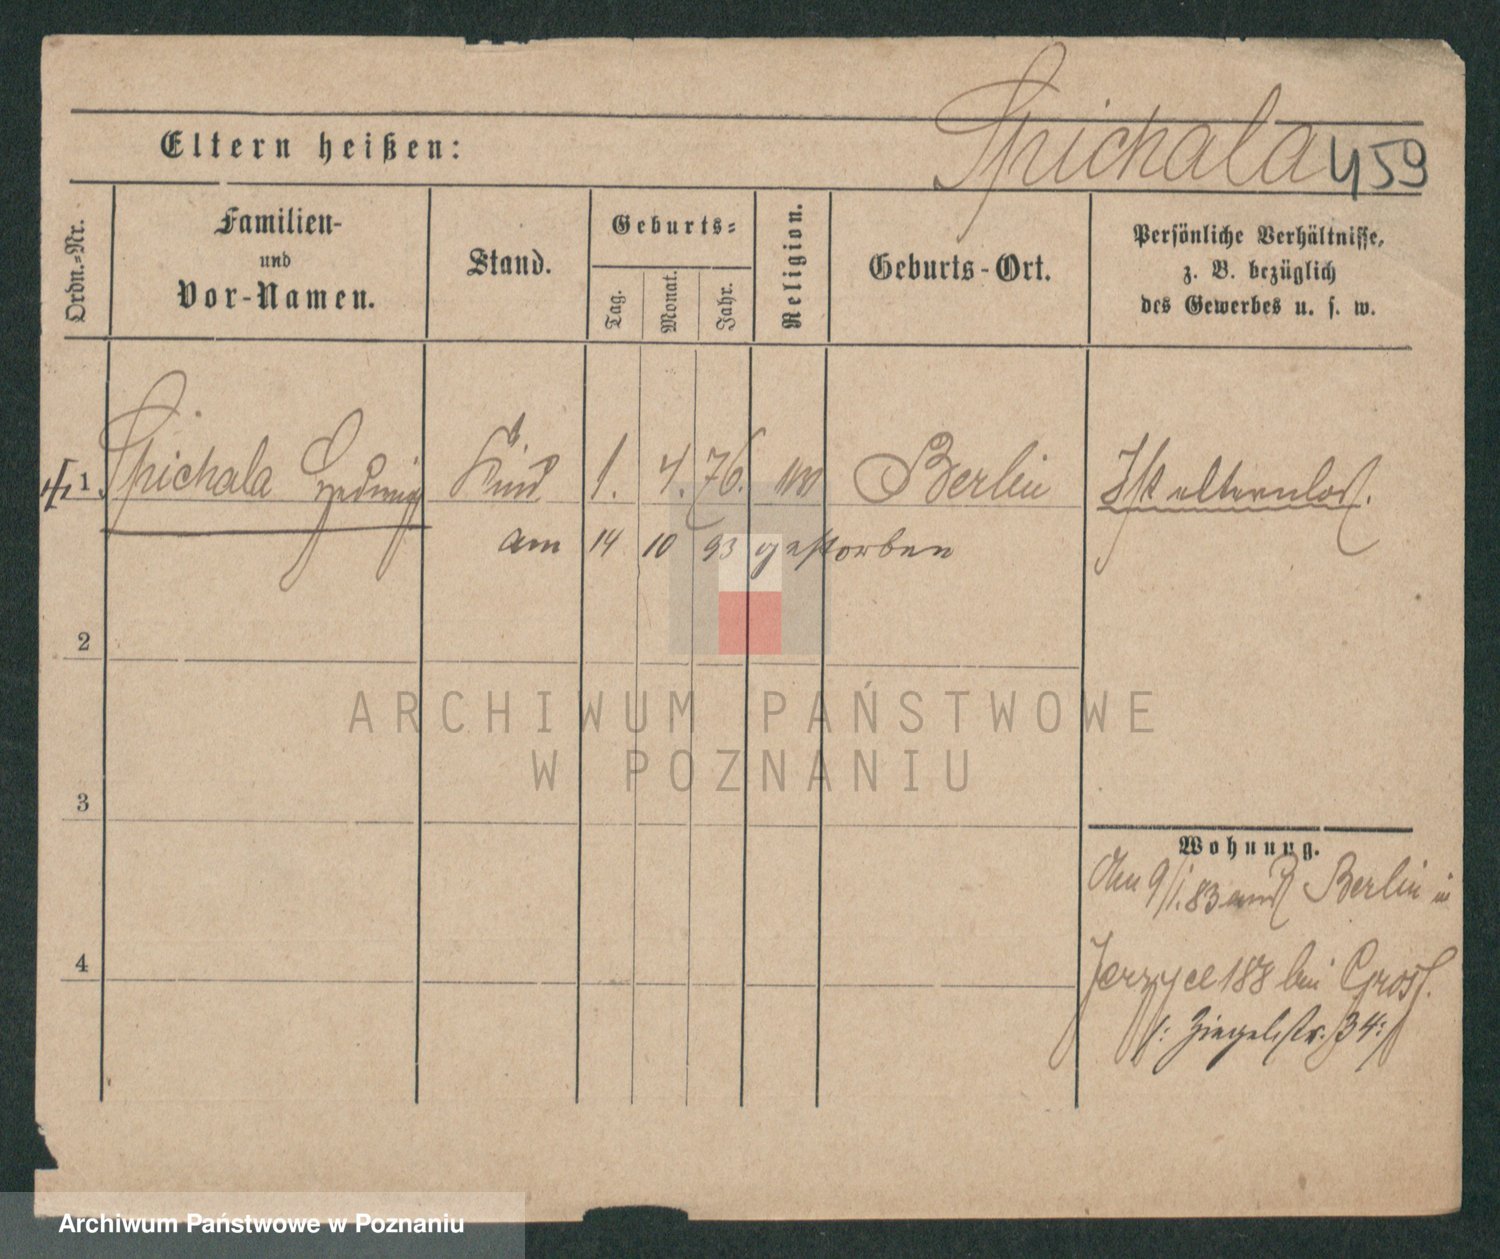 Spichala 459
Eltern heißen:
Ordn.-Nr.
Familien-
und
Vor-Namen.
Stand.
Geburts-
Tag.
Monat.
Jahr.
Religion.
Geburts-Ort.
Persönliche Verhältnisse,
z. B. bezüglich
des Gewerbes u. s. w.
1 Spichala Hedwig Kind 1. 4. 76. Berlin Ist elternlos.
am 14 10 93 gestorben
2
3
4
ARCHIWUM PAŃSTWOWE
W POZNANIU
Wohnung.
Am 9/1.83 aus Berlin in
Jerzyce 188 bei Gross.
/: Ziegelstr. 34 :/
Archiwum Państwowe w Poznaniu